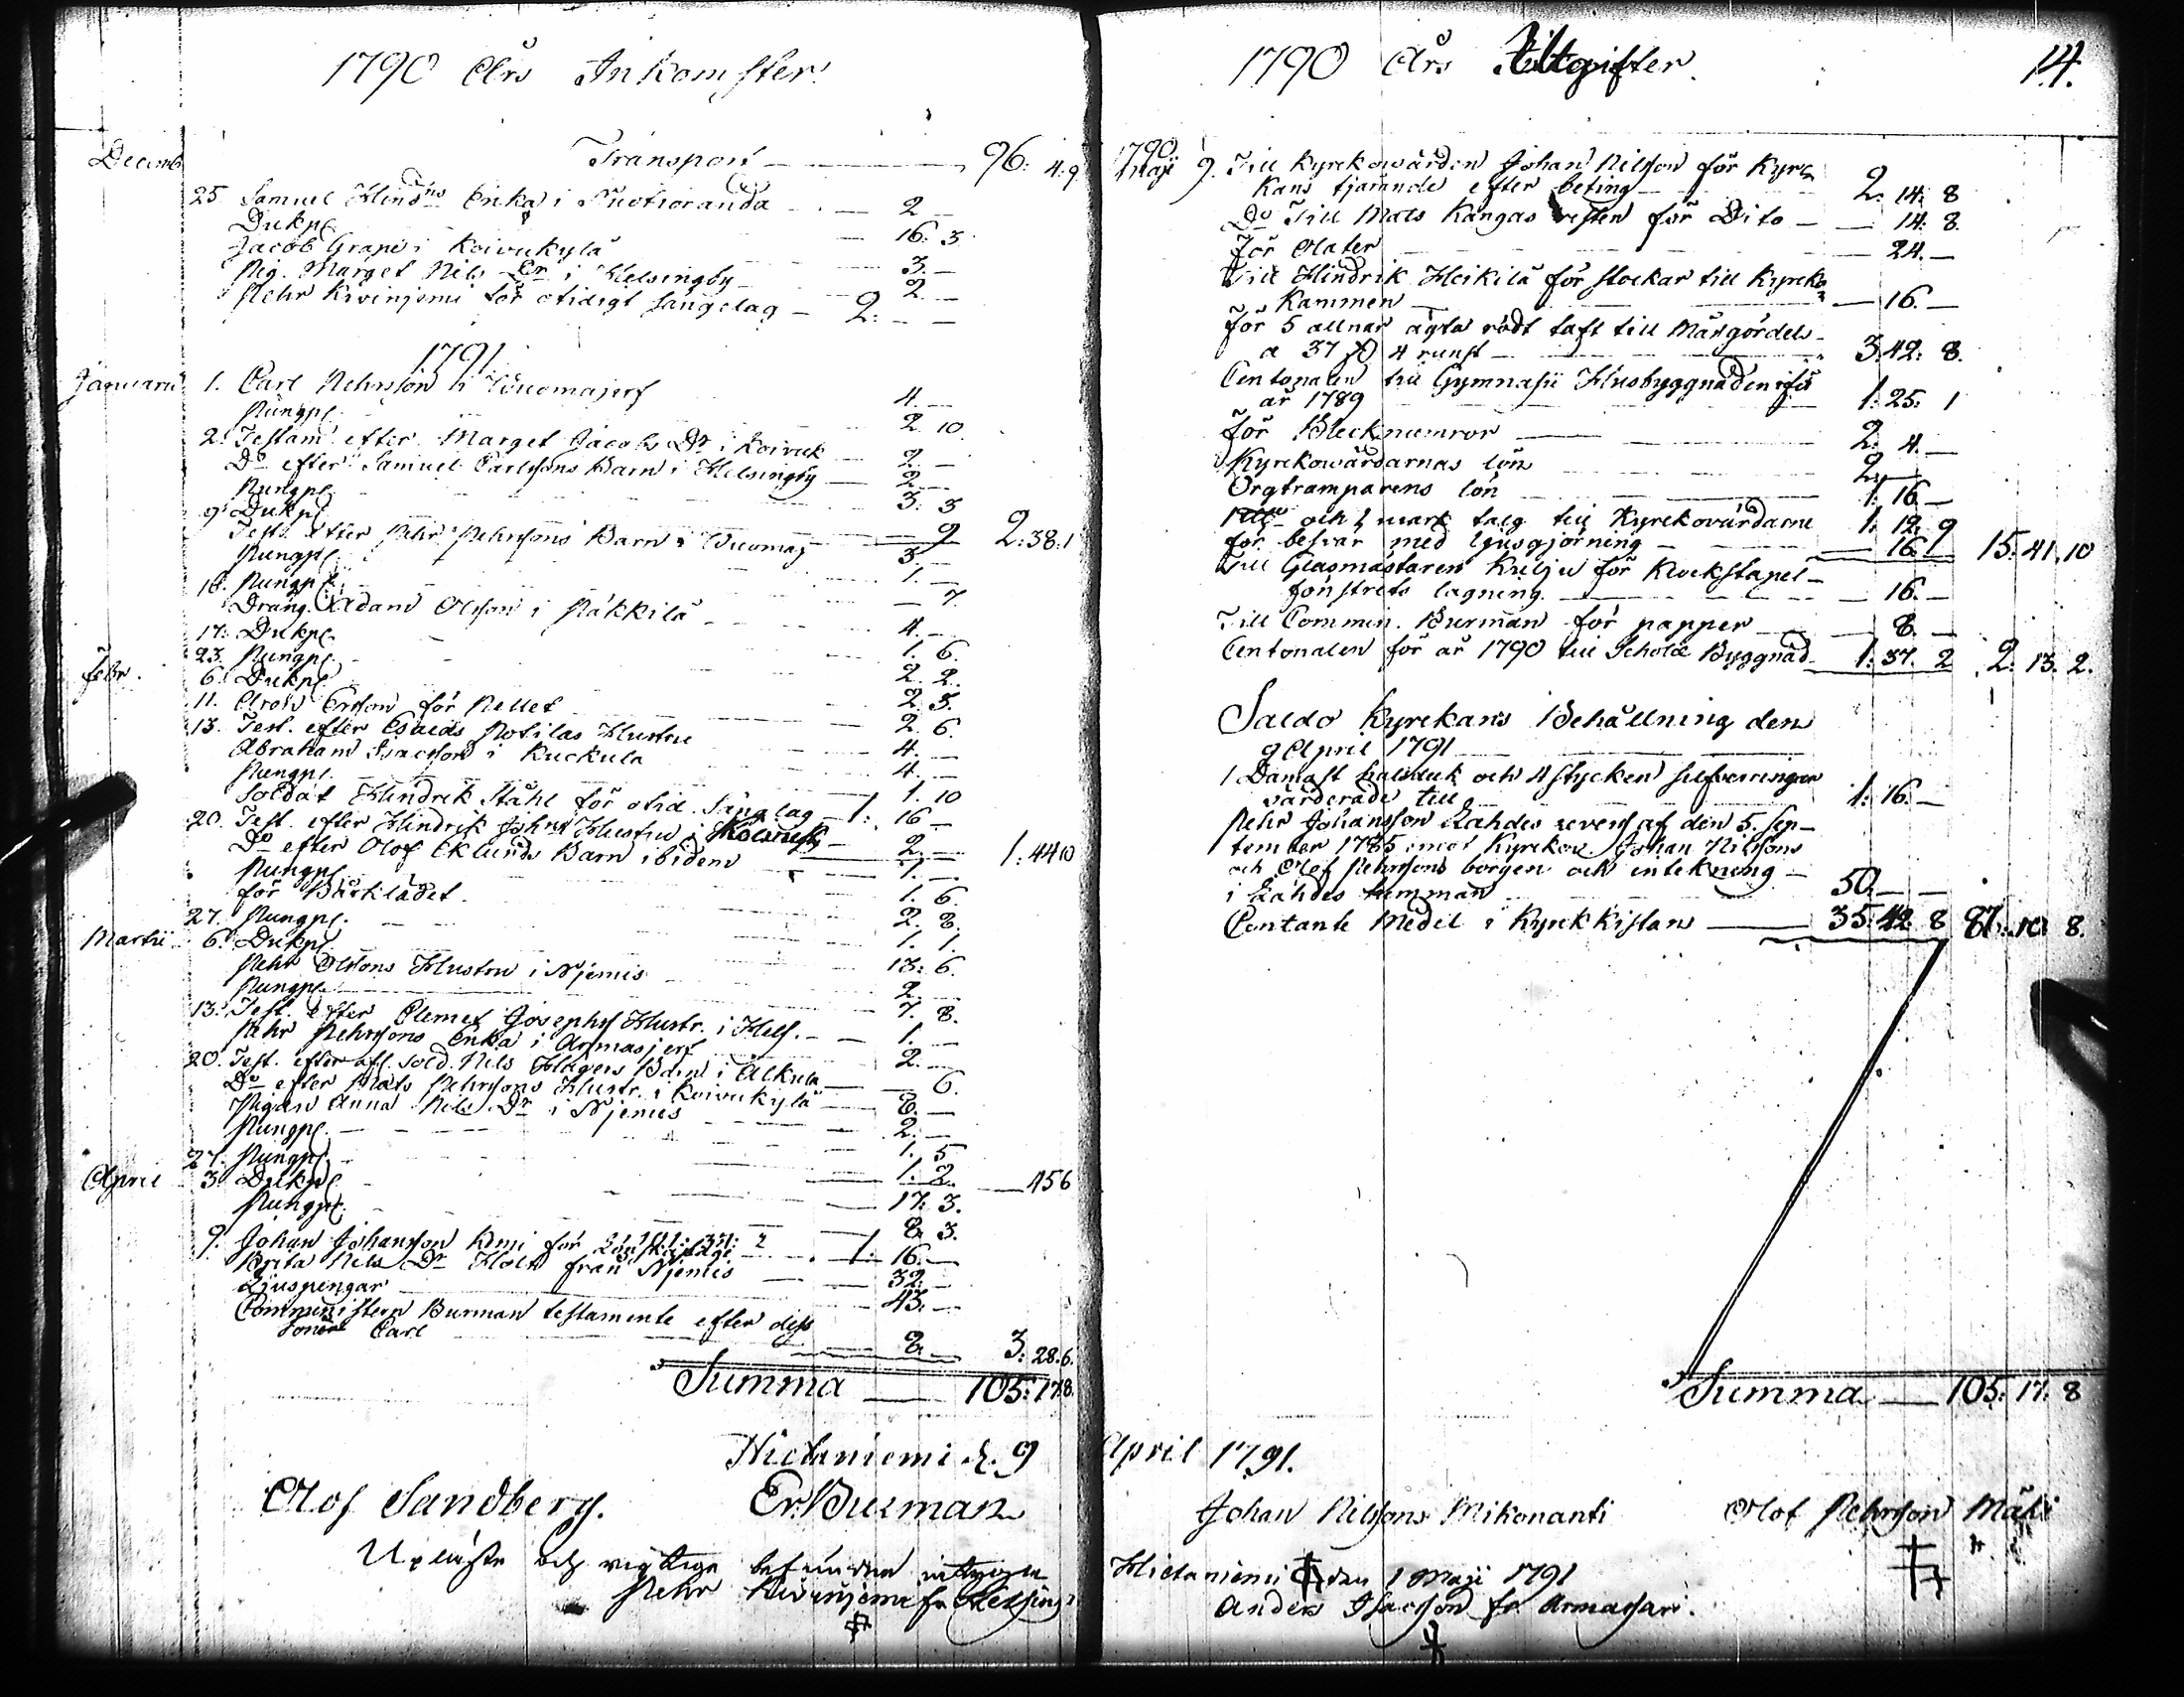 1790 Års Inkomster
Decemb. Transport 96: 4: 9
25. Samuel Hindrs Enka i Ruotioranda 2 —
Dukp. 16. 3.
Jacob Grape i Koivukylä 3. —
Pig. Marget Nils Dr i Helsingby 2 —
Pehr Kivinjemi för otidigt sängelag — 2: — —
1791
Januarii 1. Carl Pehrsson i Wuomajerf 4. —
Pungp. 2 10.
2. Testam. efter Marget Jacobs Dr i Koivuk 2 —
Do efter Samuel Carlssons Barn i Helsingby 2 —
Pungp. 3: 3
9. Dukp. 9 2: 38: 1
Test. efter Pehr Pehrssons Barn i Wuomaj 3 —
Pungp. 1. —
16. Pungp. — 7.
Dräng. Adam Olsson i Päkkilä 4. —
17. Dukp. 1. 6.
23. Pungp. 2. 2.
Febr. 6. Dukp. 2. 3.
11. Aron Ersson för Pellet 2. 6.
13. Test. efter Esaias Potilas Hustru 4. —
Abraham Isacsson i Kuckula 4. —
Pungp. 1. 10
Soldat Hindrik Ståhl för otid. Sänglag — 1: 16 —
20. Test. efter Hindrik Johns Hustru i Koivuky 2. — 1: 44 10
Do efter Olof Eklunds Barn ibidem 1. —
Pungp. 1. 6.
för Bårklädet. 2. 8.
27. Pungp. 1. 1.
Martii 6. Dukp. 13: 6.
Pehr Olssons Hustru i Njemis 2. —
Pungp. 7. 8.
13. Test. efter Clemet Josephs Hustr. i Hels. — 1. —
Pehr Pehrssons Enka i Armasjerf 2. —
20. Test. efter afl. Sold. Nils Hägers Barn i Alkula — 6.
Do efter Mats Pehrssons Hustr. i Koivukylä 6. —
Pigan Anna Nils Dr i Njemis 2. —
Pungp. 1. 5
27. Pungp. 1. 2. — 456
April 3. Dukp. 17. 3.
Pungp. 8. 3.
9. Johan Johansson Kmi för 1: 16. —
Brita Nils Dr Holt från Njemis 32. —
Ljuspengar 43. —
Comministern Burman testamente efter dess
Soner Carl 8. — 3: 28. 6.
Summa 105: 17. 8.
Hietaniemi d. 9
Olof Sandberg. Er. Burman
Upläste och rigtige befundna intyga
Pehr Kivinjemi fr Helsing

1790 Års Utgifter. 14.
1790
Maji 9. Till Kyrkowärden Johan Nilsson för Kyr
kans tjärande efter beting 2: 14: 8
Do Till Mats Kangas resten för Dito — 14: 8.
För Olater 24. —
Till Hindrik Heikilä för Stockar till Kyrko
Kammen 16. —
för 5 allnar ägta rödt taft till Mässgördels
a 37 ß 4 runst 3. 42: 8.
Centonalen till Gymnasii Husbyggnaden för
år 1789 1: 25: 1
för Blecknumror 2: 4. —
Kyrkowärdarnas lön 2. —
Orgtramparens lön 1: 16 —
och ½ mark talg till Kyrkovärdarne 1: 12 9
för besvär med ljusgjörning — 16. — 15: 41. 10
Till Glasmästaren Kulju för Klockstapel
fönstrets lagning. 16. —
Till Commin. Burman för papper 8. —
Centonalen för år 1790 till Schole Byggnad 1. 37. 2 2: 13. 2.
Saldo Kyrkans Behållning den
9 April 1791
1 Damast halsduk och 4 stycken silfverringar
värderade till 1: 16. —
Pehr Johansson Lahdes revers af den 5. Sep-
tember 1785 emot Kyrkov. Johan Nilssons
och Olof Pehrssons borgen och inteckning
i Lahdes hemman 50. — —
Contante Medel i Kyrkkistan 35: 42. 8 87: 10 8.
Summa 105: 17: 8
April 1791.
Johan Nilssons Mikonanti Olof Pehrsson Mäki
Hietaniemi den 1 Maji 1791
Anders Isacsson fr. Armasjari.